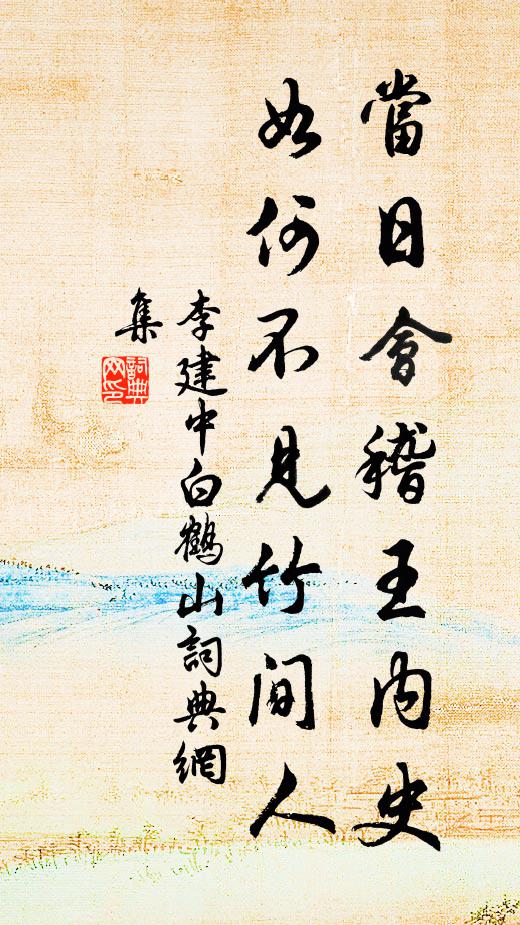 當日會稽王內史
如何不見竹間人
李建中白鶴山詞典網
集
詞典
網印